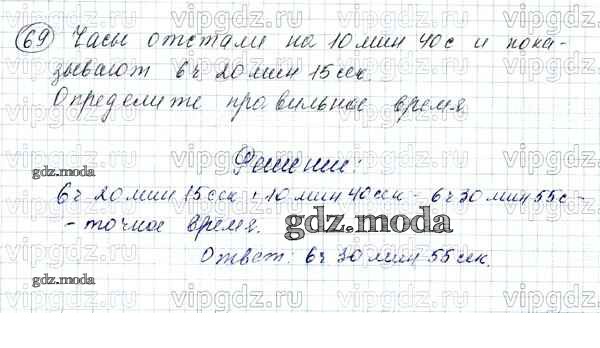 69 Часы отстали на 10 мин 40 с и пока-
зывают 6 ч 20 мин 15 сек.
Определите правильное время
Решение:
gdz.moda
6 ч 20 мин 15 сек + 10 мин 40 сек = 6 ч 30 мин 55 с -
- точное время.
gdz.moda
Ответ: 6 ч 30 мин 55 сек.
gdz.moda
vipgdz.ru